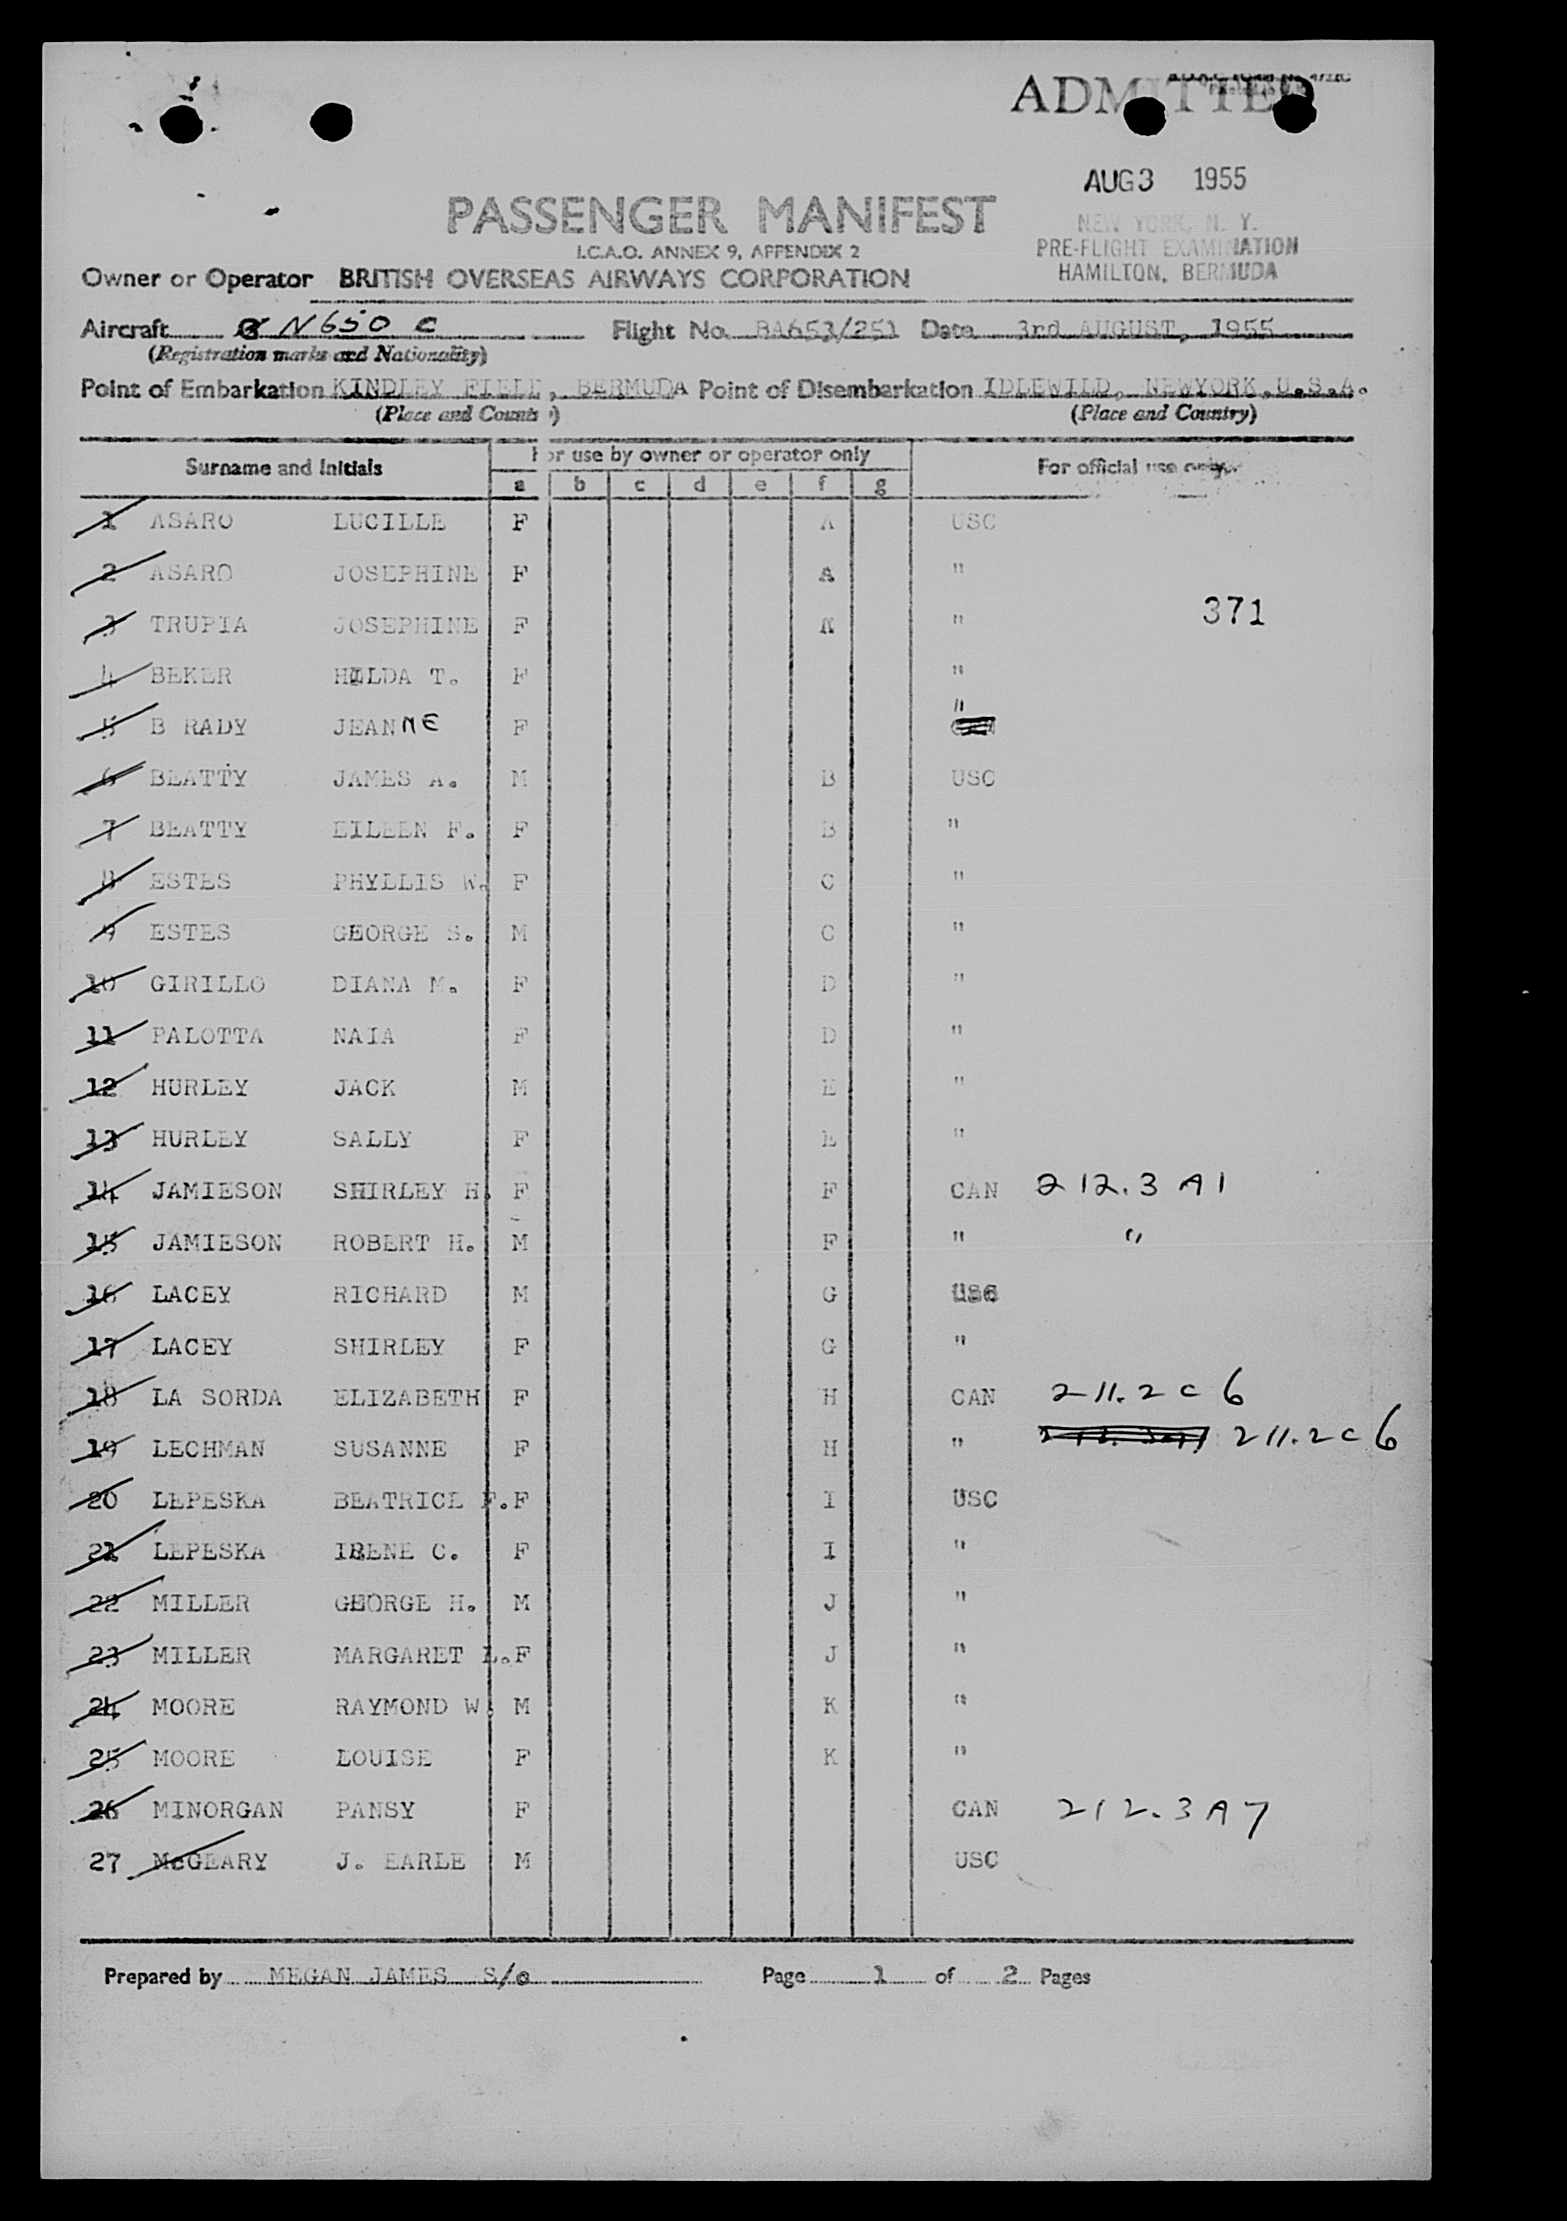 ADMITTED
AUG 3 1955
NEW YORK, N. Y.
PRE-FLIGHT EXAMINATION
HAMILTON, BERMUDA
PASSENGER MANIFEST
I.C.A.O. ANNEX 9, APPENDIX 2
Owner or Operator BRITISH OVERSEAS AIRWAYS CORPORATION
Aircraft N 650 C Flight No. BA653/251 Date 3rd AUGUST, 1955
(Registration marks and Nationality)
Point of Embarkation KINDLEY FIELD, BERMUDA Point of Disembarkation IDLEWILD, NEWYORK,U.S.A.
(Place and Country) (Place and Country)
Surname and Initials For use by owner or operator only For official use only
a b c d e f g
1 ASARO LUCILLE F A USC
2 ASARO JOSEPHINE F A "
371
3 TRUPIA JOSEPHINE F A "
4 BEKER HILDA T. F "
5 B RADY JEANNE F "
6 BEATTY JAMES A. M B USC
7 BEATTY EILEEN F. F B "
8 ESTES PHYLLIS W. F C "
9 ESTES GEORGE S. M C "
10 GIRILLO DIANA M. F D "
11 PALOTTA NAIA F D "
12 HURLEY JACK M E "
13 HURLEY SALLY F E "
14 JAMIESON SHIRLEY H. F F CAN 212.3 A1
15 JAMIESON ROBERT H. M F " "
16 LACEY RICHARD M G USC
17 LACEY SHIRLEY F G "
18 LA SORDA ELIZABETH F H CAN 211.2 C 6
19 LECHMAN SUSANNE F H " 211.2 C 6
20 LEPESKA BEATRICE F. F I USC
21 LEPESKA IRENE C. F I "
22 MILLER GEORGE H. M J "
23 MILLER MARGARET L. F J "
24 MOORE RAYMOND W. M K "
25 MOORE LOUISE F K "
26 MINORGAN PANSY F CAN 212.3 A 7
27 McGEARY J. EARLE M USC
Prepared by MEGAN JAMES S/o Page 1 of 2 Pages